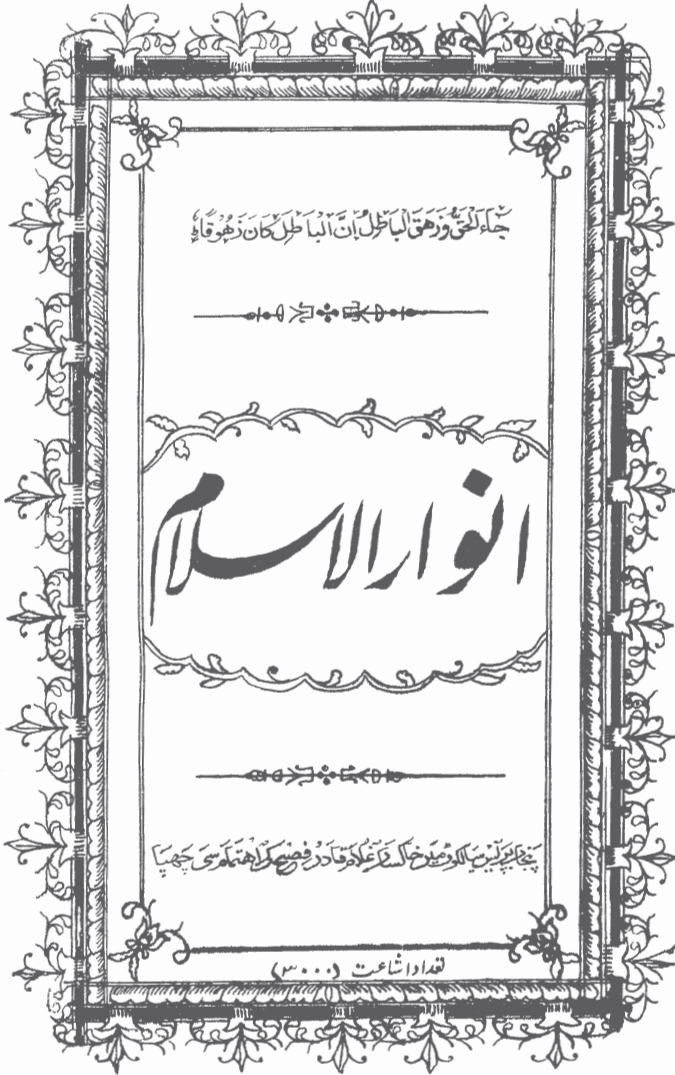 جَاءَ الْحَقُّ وَزَهَقَ الْبَاطِلُ اِنَّ الْبَاطِلَ كَانَ زَهُوْقًا
انوار الاسلام
پنجاب پریس سیالکوٹ میں خاکسار غلام قادر فصیح کے اهتمام سی چهپا
تعداد اشاعت (۳۰۰۰)